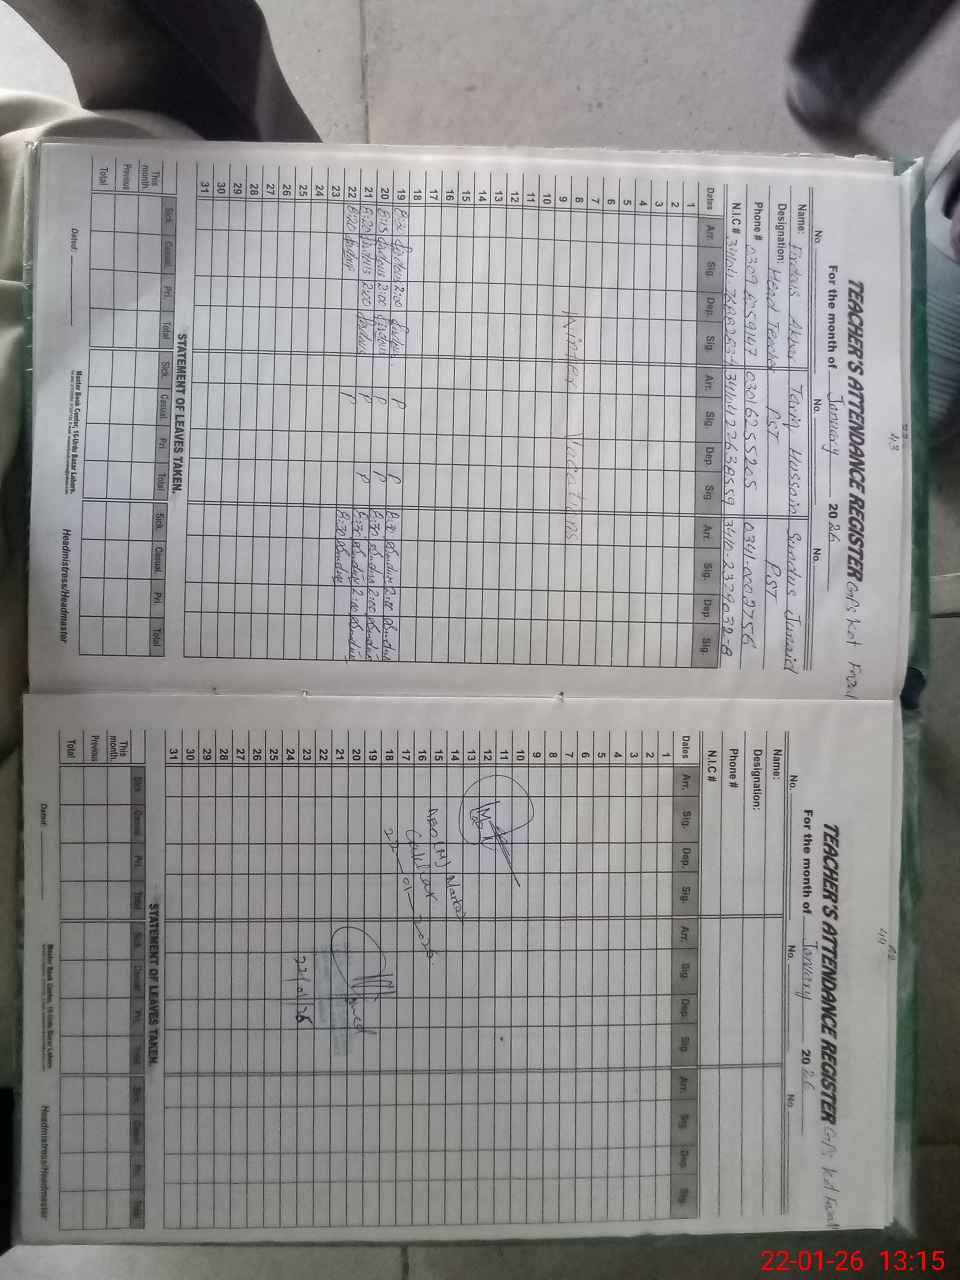 43
TEACHER'S ATTENDANCE REGISTER Kot Fazal
For the month of January 2026
No. No. No.
Name: Firdous Akbar Tariq Hussain Sundus Junaid
Designation: Head Teacher PST PST
Phone # 0309 03016255205 0341-0002756
N.I.C #
Dates Arr. Sig. Dep. Sig. Arr. Sig. Dep. Sig. Arr. Sig. Dep. Sig.
1
2
3
4
5
6
7
8 Winter Vacations
9
10
11
12
13
14
15
16
17
18
19 8:30 Firdous 2:00 Firdous P P 8:30 Sundus 2:00 Sundus
20 8:15 Firdous 2:00 Firdous P P 8:30 Sundus 2:00 Sundus
21 8:20 Firdous 2:00 Firdous P P 8:30 Sundus 2:00 Sundus
22 8:20 Firdous P 8:30 Sundus
23
24
25
26
27
28
29
30
31
STATEMENT OF LEAVES TAKEN.
Sick Casual Pri. Total Sick. Casual Pri. Total Sick. Casual. Pri. Total
This month
Previous
Total
Dated:
Master Book Center, 15-Urdu Bazar Lahore.
Headmistress/Headmaster
44
TEACHER'S ATTENDANCE REGISTER Kot Fazal
For the month of January 2026
No. No. No.
Name:
Designation:
Phone #
N.I.C #
Dates Arr. Sig. Dep. Sig. Arr. Sig. Dep. Sig. Arr. Sig. Dep. Sig.
1
2
3
4
5
6
7
8
9
10
11
12
13
14
15
16
17
18
19
20
21
22
23
24
25
26
27
28
29
30
31
22-01-2026
22/01/26
STATEMENT OF LEAVES TAKEN.
Sick Casual Pri. Total Sick Casual Pri. Total Sick Casual Pri. Total
This month.
Previous
Total
Dated:
Master Book Center, 15-Urdu Bazar Lahore
Headmistress/Headmaster
22-01-26 13:15